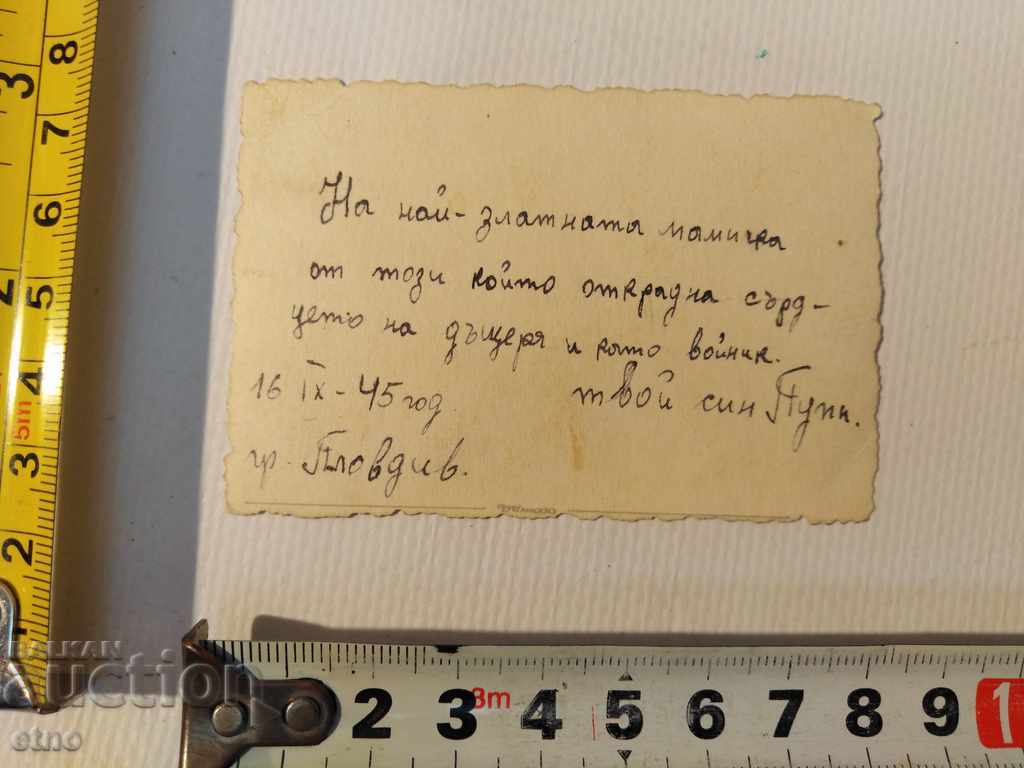 На най-златната мамичка
от този който открадна сърд-
цето на дъщеря и като войник.
16 IX - 45 год твой син
гр. Пловдив.
2 3 3m 4 5 6 7 8 9 1
8 3 7 6 2 5 4 5m 3 2 1
BALKAN
auction
etno